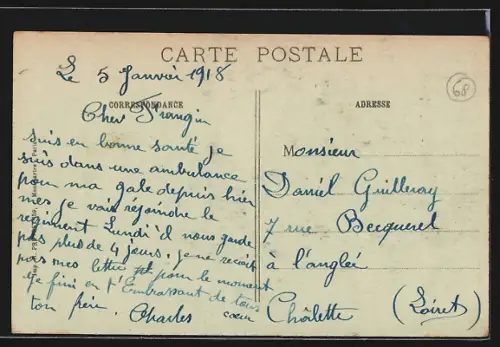 CARTE POSTALE
Le 5 Janvier 1918
CORRESPONDANCE
Cher Frangin
suis en bonne santé je
suis dans une ambulance
pour ma gale depuis hier
mes je vais rejoindre le
regiment Lundi il nous garde
pas plus de 4 jours. je ne recoit
pas mes lettre pour le moment
Je fini en t'Embrassant de tous
ton frère. Charles coeur
ADRESSE
68
Monsieur
Daniel Guilleray
7 rue Becquerel
à l'anglée
Châlette (Loiret)